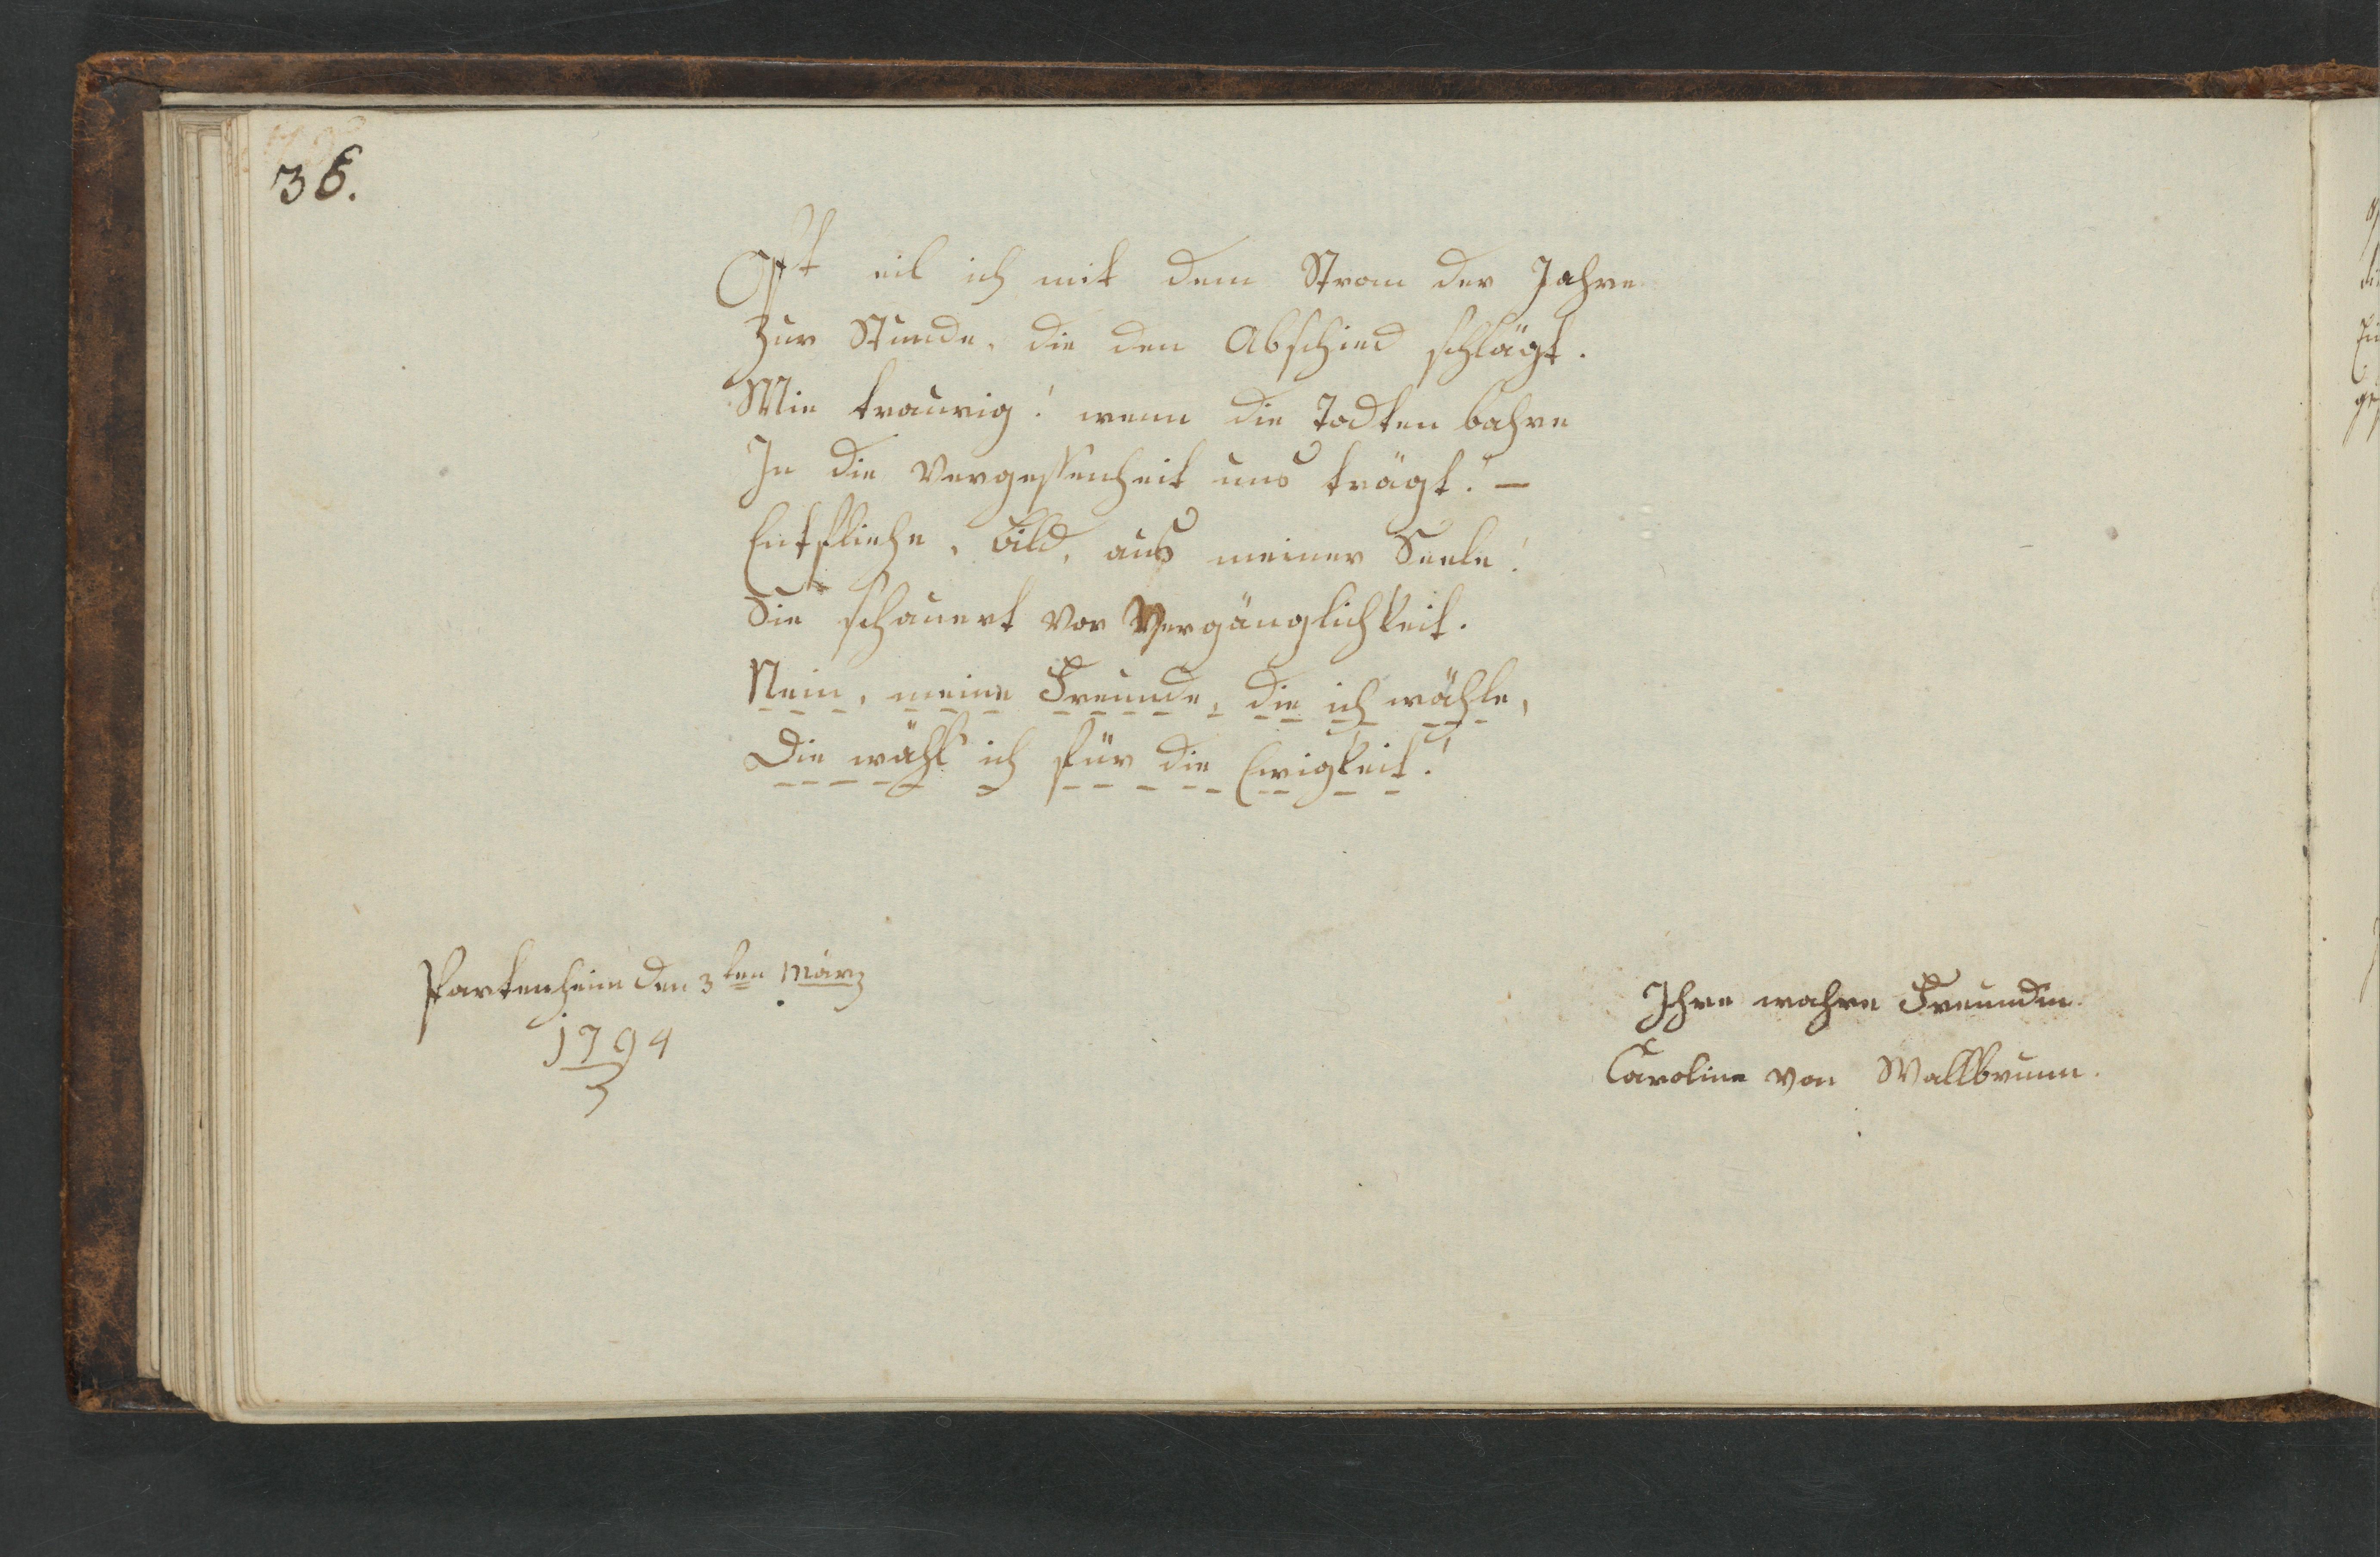 36.
Oft eil ich mit dem Strom der Jahre
Zur Stunde, die den Abschied schlägt.
Wie traurig! wenn die Todten bahre
In die Vergessenheit uns trägt! —
Entfliehe, Bild, aus meiner Seele!
Sie schauert vor Vergänglichkeit.
Nein, meine Freunde, die ich wähle,
Die wähl' ich für die Ewigkeit!
Partenheim den 3ten März
1794
Ihre wahre Freundin.
Caroline von Wallbrunn.